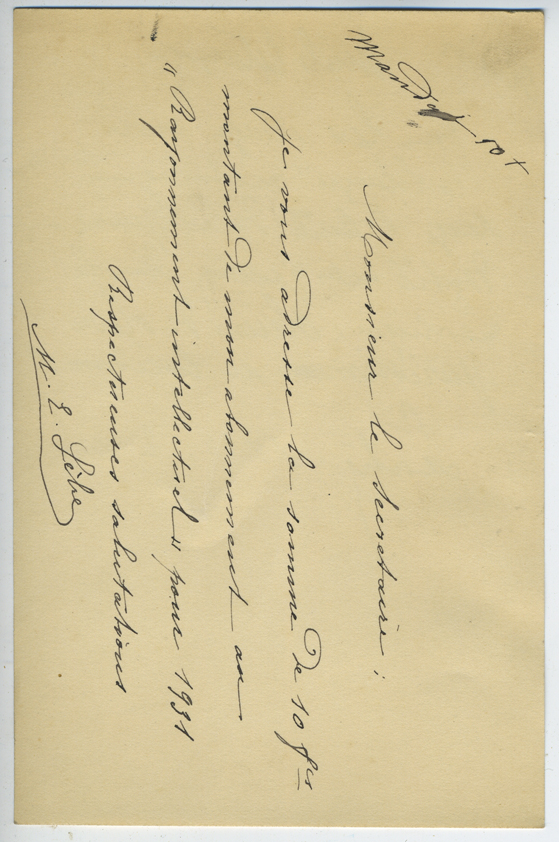 Mandat 10f
Monsieur le Secrétaire ;
Je vous adresse la somme de 10 frs
montant de mon abonnement au
"Rayonnement intellectuel" pour 1931
Respectueuses salutations
M. E.